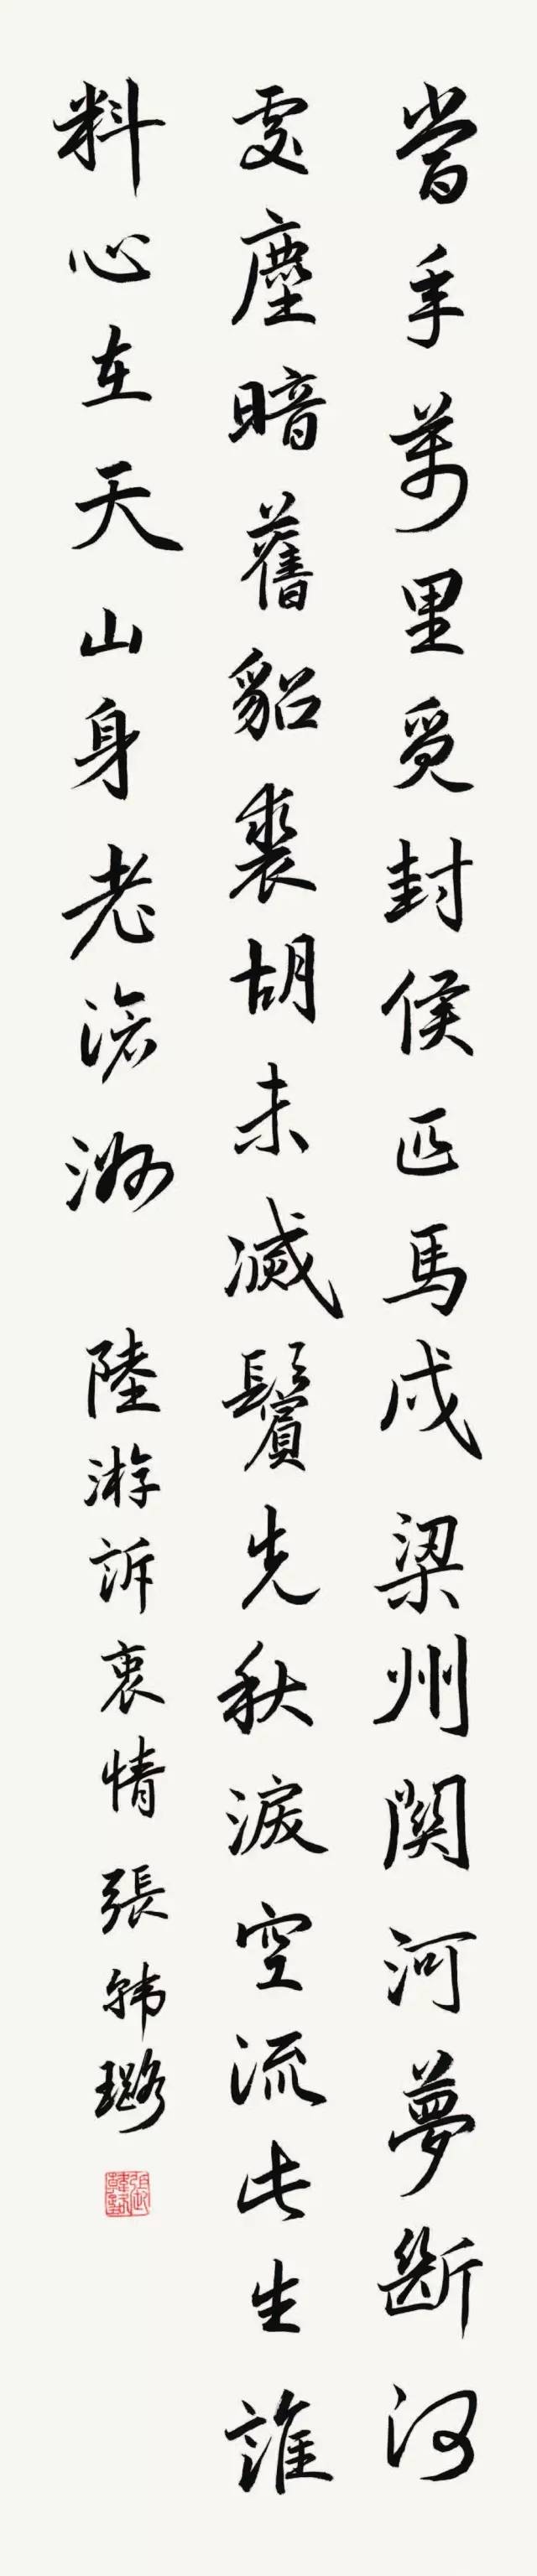 當年萬里覓封侯匹馬戍梁州關河夢斷何
處塵暗舊貂裘胡未滅鬢先秋淚空流此生誰
料心在天山身老滄洲 陸游訴衷情 張韓璐